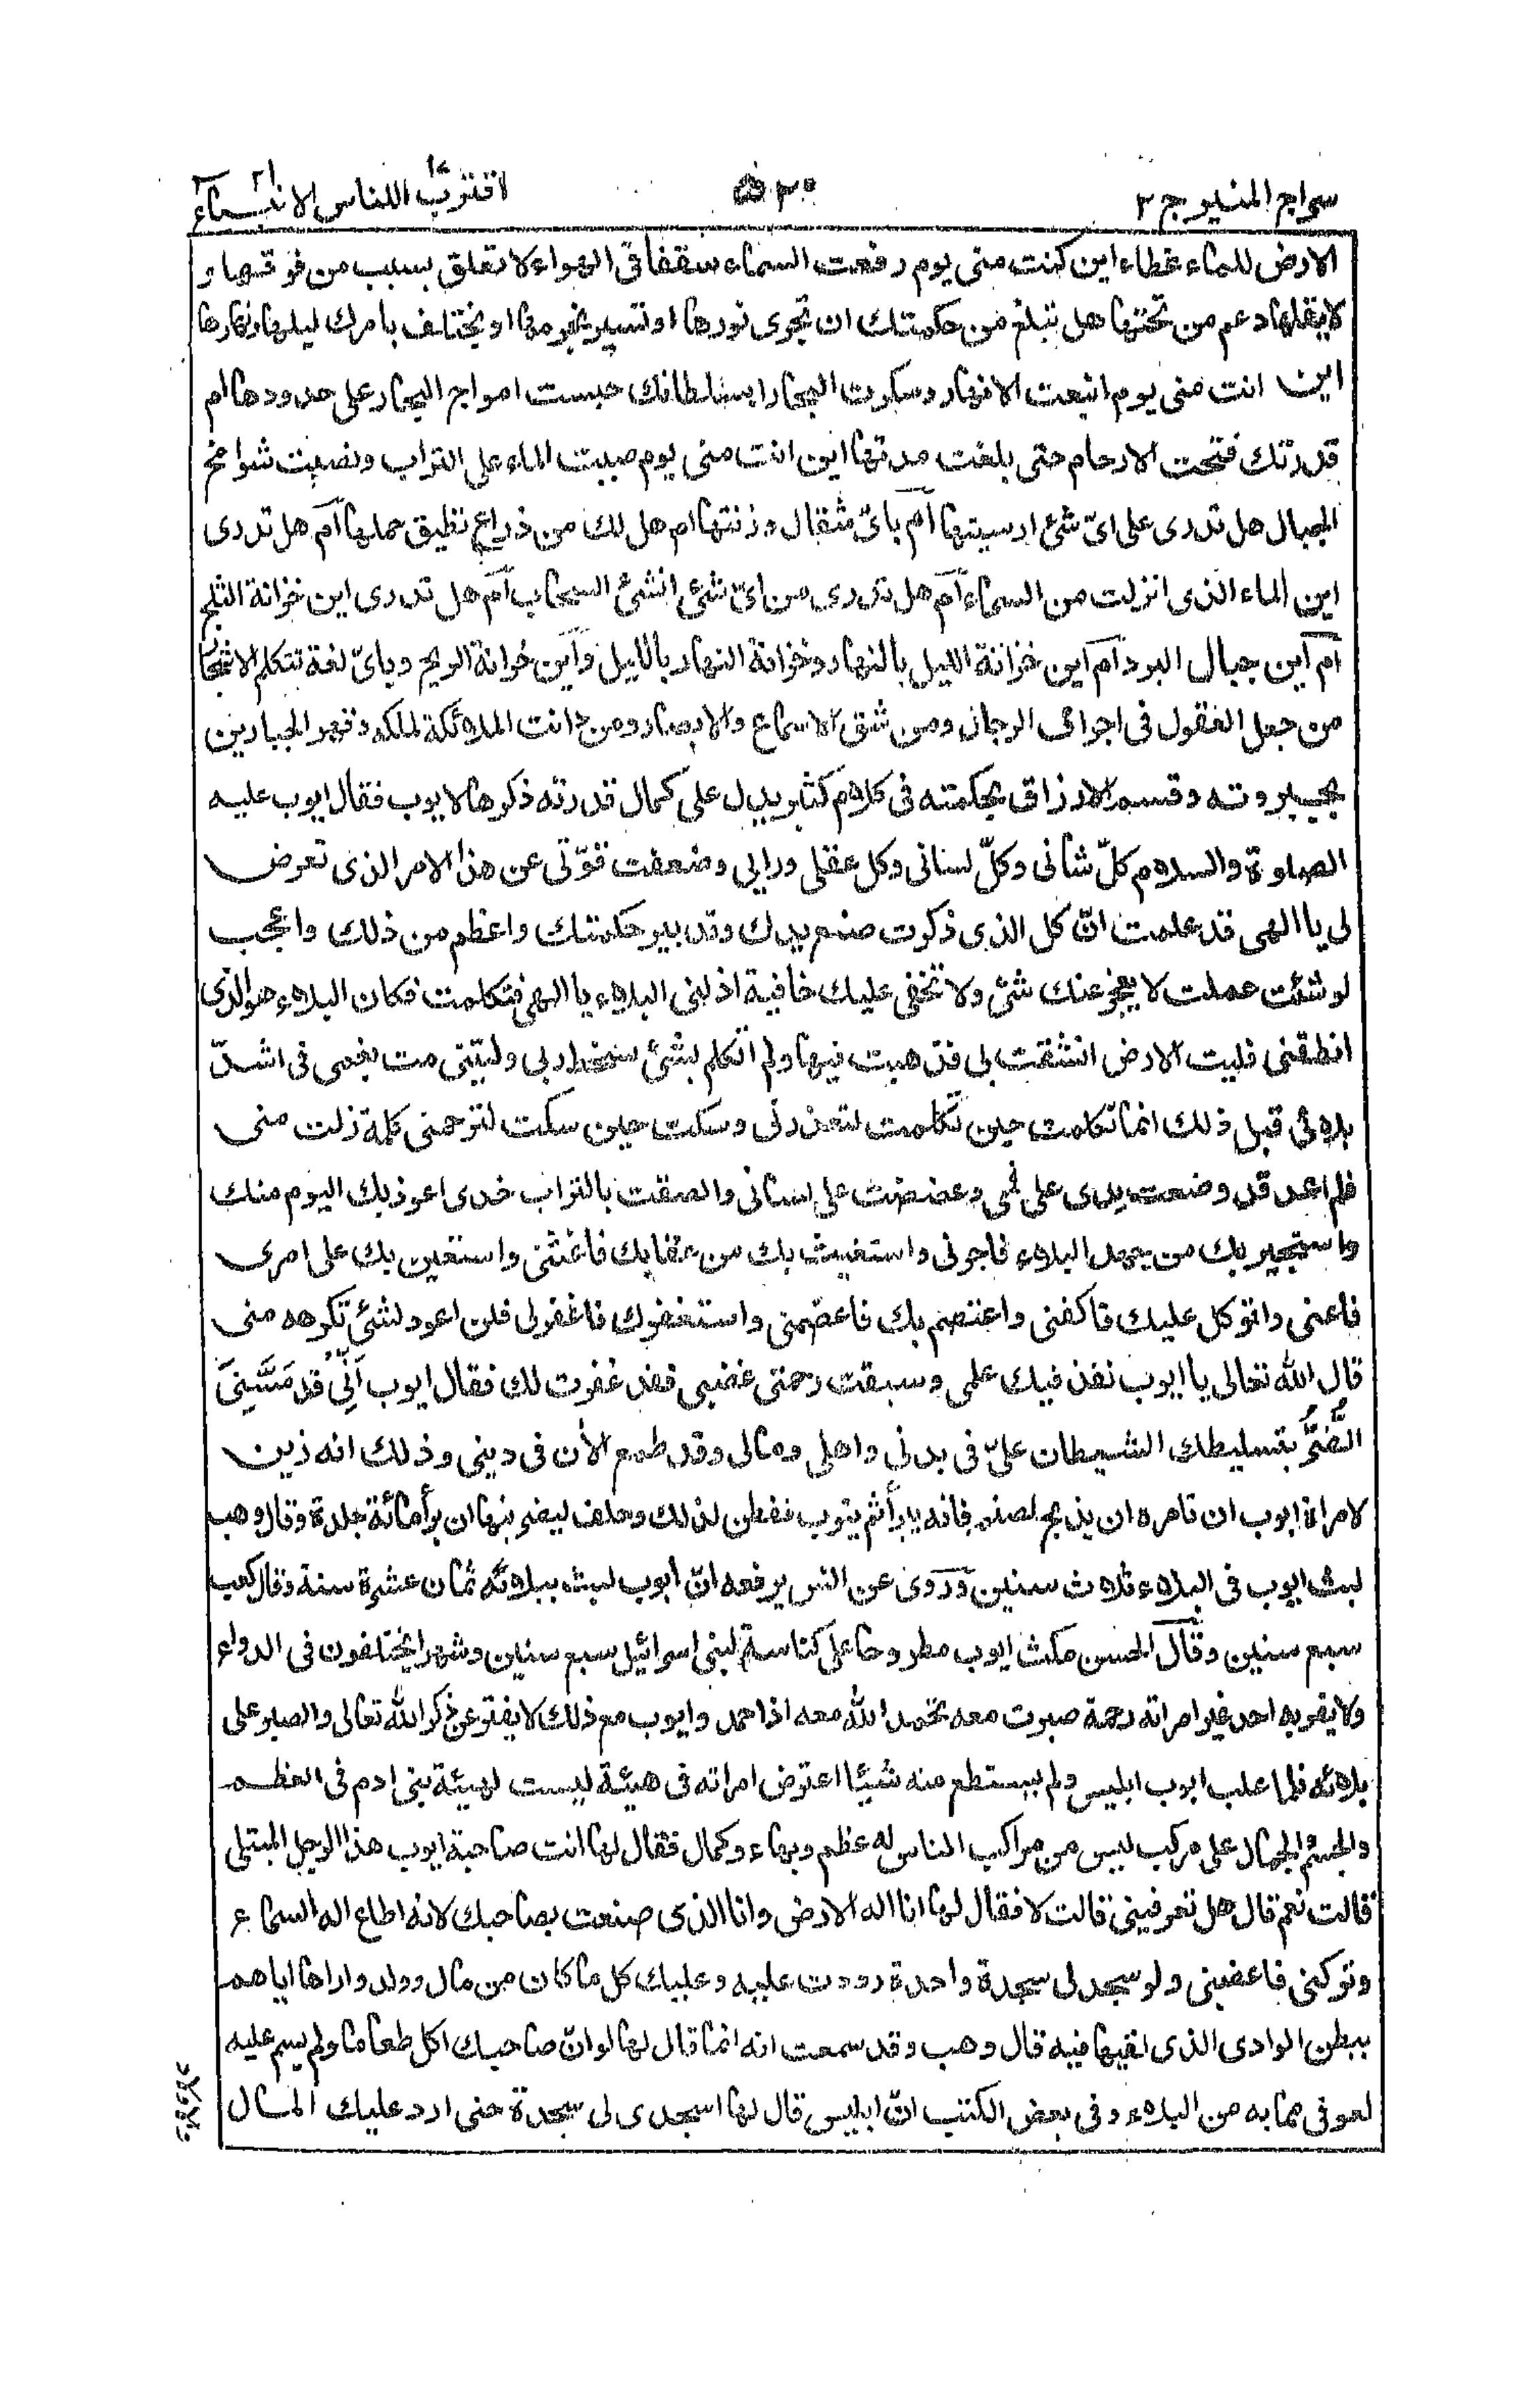 سراج المنير ج ٣ ٥٣٠ اقترب للناس ١٧ الانبياء ٢١
الارض للماء غطاء اين كنت منى يوم رفعت السماء سقفا فى الهواء لا تعلق بسبب من فوقها و
لا يقلها دعم من تحتها هل تبلغ من حكمتك ان تجرى نورها او تسير نجومها او يختلف بامرك ليلها ونهارها
اين انت منى يوم انبعت الانهار وسكرت البحار ابسلطانك حبست امواج البحار على حدودها ام
قدرتك فتحت الارحام حتى بلغت مدتها اين انت منى يوم صببت الماء على التراب ونصبت شوامخ
الجبال هل تدرى على اىّ شئ ارسيتها اَم باىّ مثقال وزنتها ام هل لك من ذراع تطيق حملها اَم هل تدرى
اين الماء الذى انزلت من السماء اَم هل تدرى من اىّ شئ انشئ السحاب اَم هل تدرى اين خزانة الثلج
اَم اَين جبال البرد اَم اين خزانة الليل بالنهار وخزانة النهار بالليل واَين خزانة الريح وباىّ لغة تتكلم الاشجار
من جعل العقول فى اجواف الرجال ومن شق الاسماع والابصار ومن ذانت الملائكة لملكه وقهر الجبارين
بجبروته وقسم الارزاق بحكمته فى كلام كثير يدل على كمال قدرته ذكرها لايوب فقال ايوب عليه
الصلوة والسلام كلّ شانى وكلّ لسانى وكل عقلى ورايى وضعفت قوّتى عن هذا الامر الذى تعرض
لى يا الهى قد علمت انّ كل الذى ذكرت صنع يدك وتدبير حكمتك واعظم من ذلك واعجب
لو شئت عملت لا يعجز عنك شئ ولا تخفى عليك خافية اذ لنى البلاء يا الهى فتكلمت فكان البلاء هو الذى
انطقنى فليت الارض انشقت بى فذهبت فيها ولم اتكلم بشئ سخط ربى وليتنى مت بغمى فى اشدّ
بلائى قبل ذلك انما تكلمت حين تكلمت لتعذرنى وسكت حين سكت لترحمنى كلمة زلت منى
فلم اعد قد وضعت يدى على فمى وعضضت على لسانى والصقت بالتراب خدى اعوذ بك اليوم منك
واستجير بك من جهد البلاء فاجرنى واستغيث بك من عقابك فاغثنى واستعين بك على امرى
فاعنى واتوكل عليك فاكفنى واعتصم بك فاعصمنى واستغفرك فاغفر لى فلن اعود لشئ تكرهه منى
قال الله تعالى يا ايوب نفذ فيك علمى وسبقت رحمتى غضبى فقد غفرت لك فقال ايوب اَنِّى قد مَسَّنِىَ
الضُّرُّ بتسليطك الشيطان علىّ فى بدنى واهلى ومالى وقد طمع الاٰن فى دينى وذلك انه زين
لامراة ايوب ان تامره ان يذبح لصنم فانه يبرأ ثم يتوب ففطن لذلك وحلف ليضربنها ان برأ مائة جلدة وقال وهب
لبث ايوب فى البلاء ثلاث سنين وروى عن انس يرفعه انّ ايوب لبث ببلائه ثمان عشرة سنة وقال كعب
سبع سنين وقال الحسن مكث ايوب مطروحا على كناسة لبنى اسرائيل سبع سنين وشهرا يختلفون فى الدواء
ولا يقربه احد غير امراته رحمة صبرت معه تحمد الله معه اذا حمد وايوب مع ذلك لا يفتر عن ذكر الله تعالى والصبر على
بلائه فلما غلب ايوب ابليس ولم يستطع منه شيئا اعترض امراته فى هيئة ليست لهيئة بنى ادم فى العظم
والجسم والجمال على مركب ليس من مراكب الناس له عظم وبهاء وكمال فقال لها انت صاحبة ايوب هذا الرجل المبتلى
قالت نعم قال هل تعرفينى قالت لا فقال لها انا اله الارض وانا الذى صنعت بصاحبك لانه اطاع اله السماء
وتركنى فاغضبنى ولو سجد لى سجدة واحدة رددت عليه وعليك كل ما كان من مال وولد واراها اياهم
ببطن الوادى الذى لقيها فيه قال وهب وقد سمعت انه انما قال لها لو انّ صاحبك اكل طعاما ولم يسم عليه
لعوفى مما به من البلاء وفى بعض الكتب انّ ابليس قال لها اسجدى لى سجدة حتى ارد عليك المال